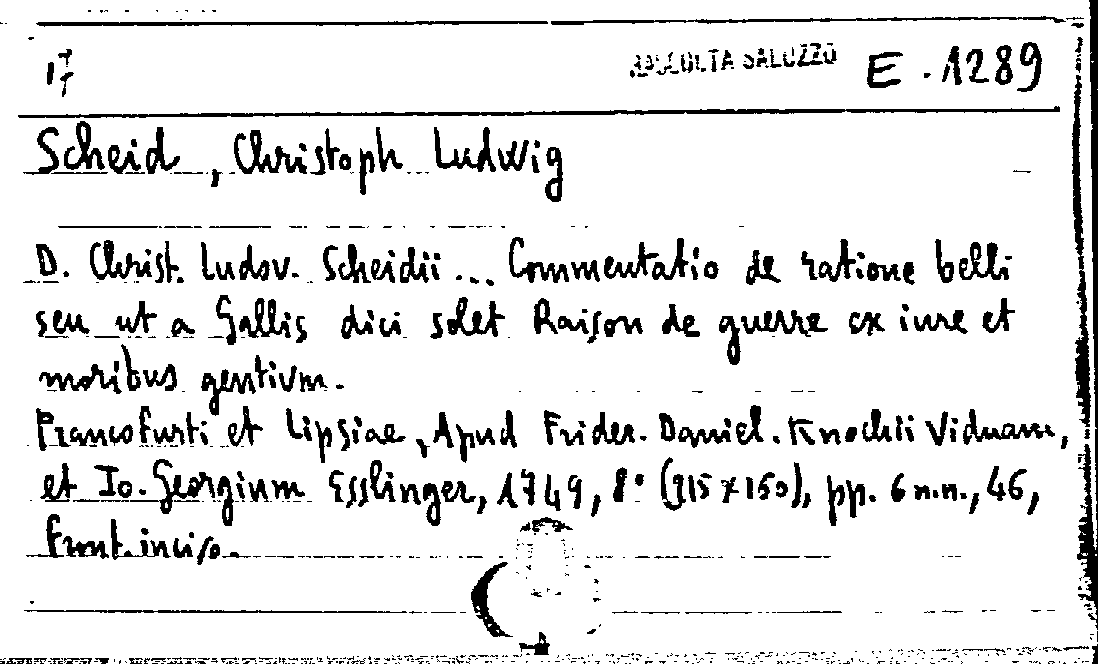 RACCOLTA SALUZZO E. 1289
Scheid, Christoph Ludwig
D. Christ. Ludov. Scheidii... Commentatio de ratione belli
seu ut a Gallis dici solet Raison de guerre ex iure et
moribus gentium.
Francofurti et Lipsiae, Apud Frider. Daniel. Knochii Viduam,
et Io. Georgium Esslinger, 1749, 8° (215x150), pp. 6 n.n., 46,
front. inciso.